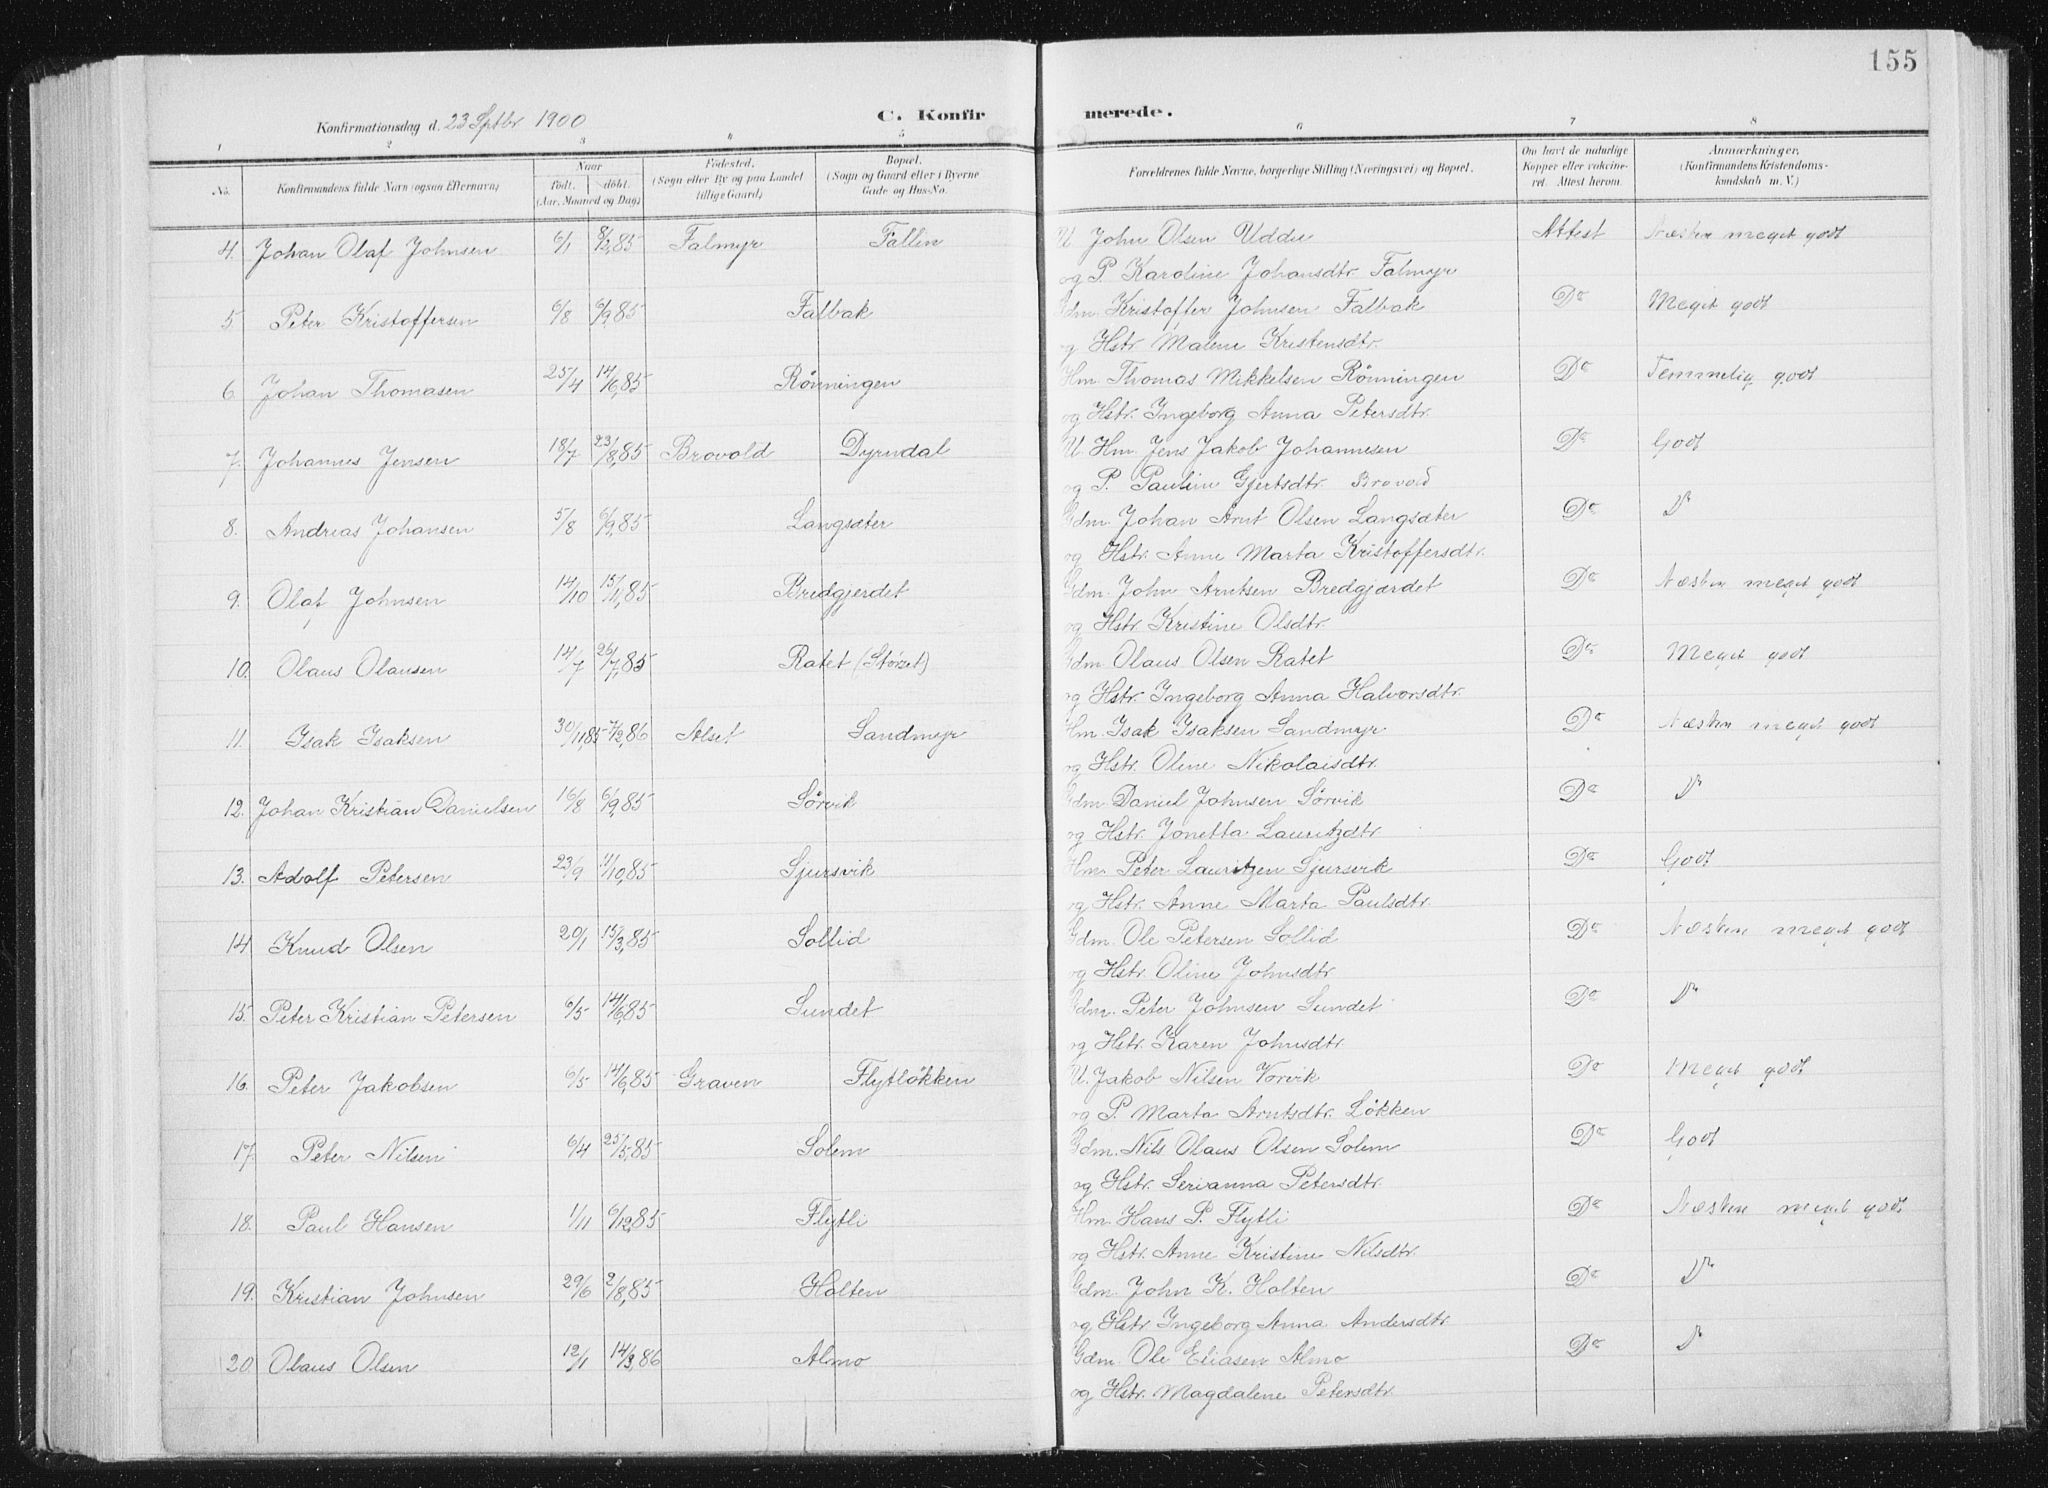 155
Konfirmationsdag d. 23 Septbr. 1900 C. Konfirmerede.
1 2 3 4 5 6 7 8
No. Konfirmandens fulde Navn (ogsaa Efternavn) Naar født. døbt. (Aar, Maaned og Dag) Fødested. (Sogn eller By og paa Landet tillige Gaard) Bopæl. (Sogn og Gaard eller i Byerne Gade og Hus-No. Forældrenes fulde Navne, borgerlige Stilling (Næringsvei) og Bopæl. Om havt de naturlige Kopper eller vakcineret. Attest herom. Anmærkninger. (Konfirmandens Kristendomskundskab m. V.)
4. Johan Olaf Johnsen 6/1 8/2,85 Falmyr Fallin U. John Olsen Uddu Attest Næsten meget godt
og P. Karoline Johansdtr. Falmyr
5. Peter Kristoffersen 6/8 6/9,85 Falbak Gdm. Kristoffer Johnsen Falbak Do Meget godt
og Hstr. Malene Kristensdtr.
6. Johan Thomasen 25/4 14/6,85 Rönningen Hm. Thomas Mikkelsen Rönningen Do Temmelig godt
og Hstr. Ingeborg Anna Petersdtr.
7. Johannes Jensen 18/7 23/8,85 Brovold Dyrndal U. Hm. Jens Jakob Johannesen Do Godt
og P. Pauline Gjertsdtr. Brovold
8. Andreas Johansen 5/8 6/9,85 Langsæter Gdm. Johan Arnt Olsen Langsæter Do Do
og Hstr. Anne Marta Kristoffersdtr.
9. Olaf Johnsen 14/10 15/11,85 Bredgjerdet Gdm. John Arntsen Bredgjærdet Do Næsten meget godt
og Hstr. Kristine Olsdtr.
10. Olaus Olausen 14/7 26/7,85 Ratet (Störset) Gdm. Olaus Olsen Ratet Do Meget godt
og Hstr. Ingeborg Anna Halvorsdtr.
11. Isak Isaksen 30/11,85 7/2,86 Alset Sandmyr Hm. Isak Isaksen Sandmyr Do Næsten meget godt
og Hstr. Oline Nikolaisdtr.
12. Johan Kristian Danielsen 16/8 6/9,85 Sörvik Gdm. Daniel Johnsen Sörvik Do Do
og Hstr. Jonetta Lauritzdtr.
13. Adolf Petersen 23/9 11/10,85 Sjursvik Hm. Peter Lauritzen Sjursvik Do Godt
og Hstr. Anne Marta Paulsdtr.
14 Knud Olsen 20/1 15/3,85 Sollid Gdm. Ole Petersen Sollid Do Næsten meget godt
og Hstr. Oline Johnsdtr.
15. Peter Kristian Petersen 6/5 14/6,85 Sundet Gdm. Peter Johnsen Sundet Do Do
og Hstr. Karen Johnsdtr.
16. Peter Jakobsen 6/5 14/6,85 Graven Flytlökken U. Jakob Nilsen Vorvik Do Meget godt
og P. Marta Arntsdtr. Lökken
17. Peter Nilsen 6/4 25/5,85 Solem Gdm. Nils Olaus Olsen Solem Do Godt
og Hstr. Serianna Petersdtr.
18. Paul Hansen 1/11 6/12,85 Flytli Hm. Hans P. Flytli Do Næsten meget godt
og Hstr. Anne Kristine Nilsdtr.
19. Kristian Johnsen 29/6 2/8,85 Holten Gdm. John K. Holten Do Do
og Hstr. Ingeborg Anna Andersdtr.
20. Olaus Olsen 12/1 14/3,86 Almo Gdm. Ole Eliasen Almo Do Do
og Hstr. Magdalene Petersdtr.